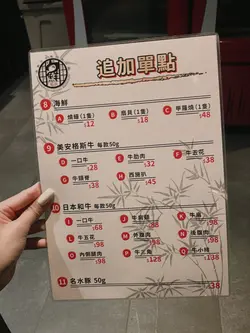 追加單點
8 海鮮
A 燒蠔(1隻) $12
B 扇貝(1隻) $18
C $48
9 美安格斯牛 每款50g
D 一口牛 $28
E 牛肋肉 $32
F 牛舌花 $38
G 牛頸脊 $38
H 西施扒 $45
10 日本和牛 每款50g
I 一口牛 $68
J $68
K $98
L 牛五花 $98
M $98
N $98
O 內側腿肉 $98
P 牛三角 $128
Q 牛小排 $138
11 名水豚 50g